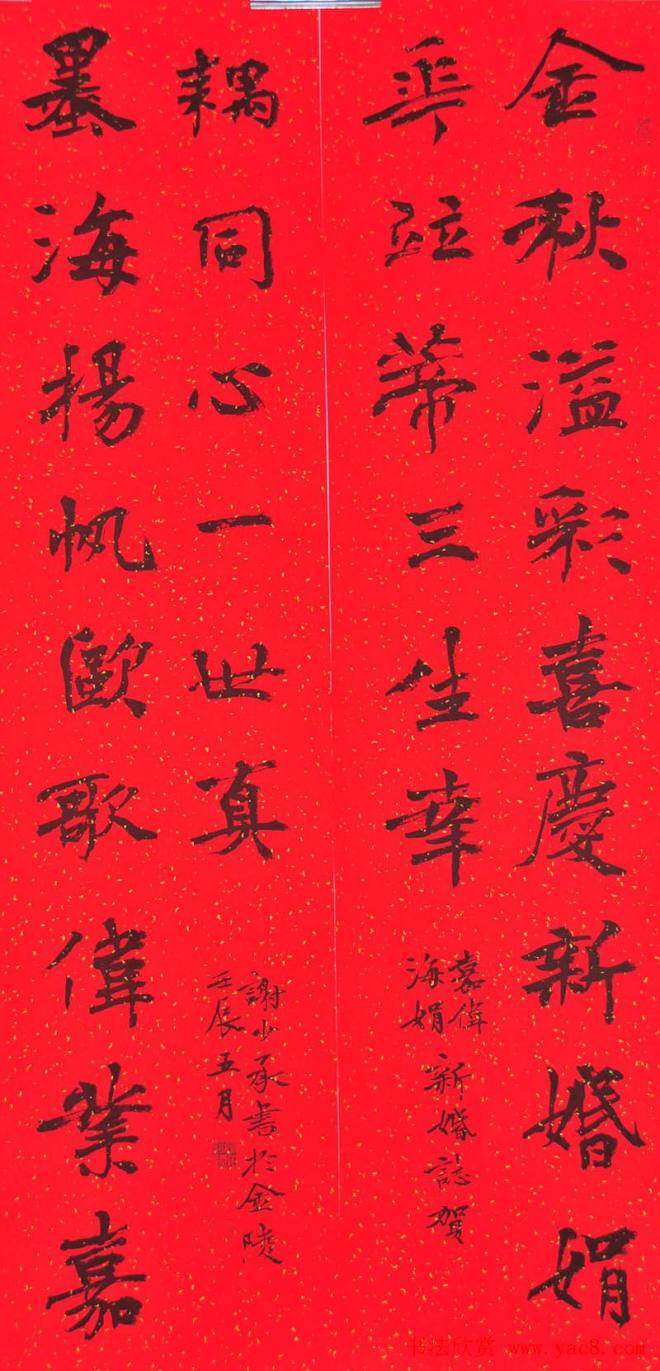 金秋溢彩喜慶新婚娟
華竝蒂三生幸
嘉偉
海娟
新婚誌賀
墨海揚帆歐歌偉業嘉
耦同心一世真
謝少承書於金陵
壬辰五月
书法欣赏 www.yac8.com